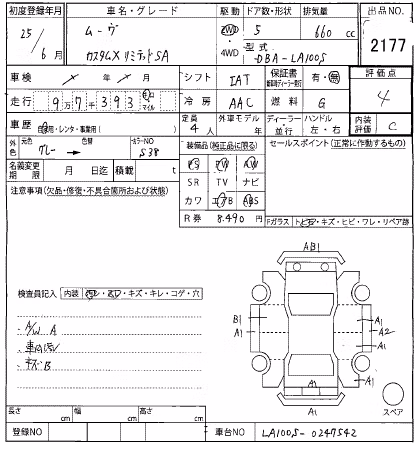 初度登録年月 車名・グレード ドア数・形状 排気量 出品NO.
25 / 6 月 ムーヴ 2WD 5 660 cc
カスタムX リミテッド SA 4WD 型式 DBA-LA100S 2177
車検 / 月 シフト IAT 保証書 有・無 評価点
走行 9万7千393 キロ マイル 冷房 AAC 燃料 G 4
車歴 自家用・レンタ・事業用( ) 定員 4人 外車モデル 年 ディーラー 並行 ハンドル 左・右 内装評価 C
外色 元色 グレー 色替 カラーNO S38 装備品(純正品に限る) セールスポイント(正常に作動するもの)
名義変更期限 月 日迄 積載 t PS PW AW
SR TV ナビ
注意事項(欠品・修復・不具合箇所および状態) カワ エアB ABS
R券 8.490 円 Fガラス トビ石・キズ・ヒビ・ワレ・リペア跡
AB1
検査員記入 内装 汚レ・スレ・キズ・キレ・コゲ・穴
B1 A1
A/W A A1 A2
A1
A1 A1
A1
スペア
長さ cm 幅 cm 高さ cm
登録NO 車台NO LA100S-0247542